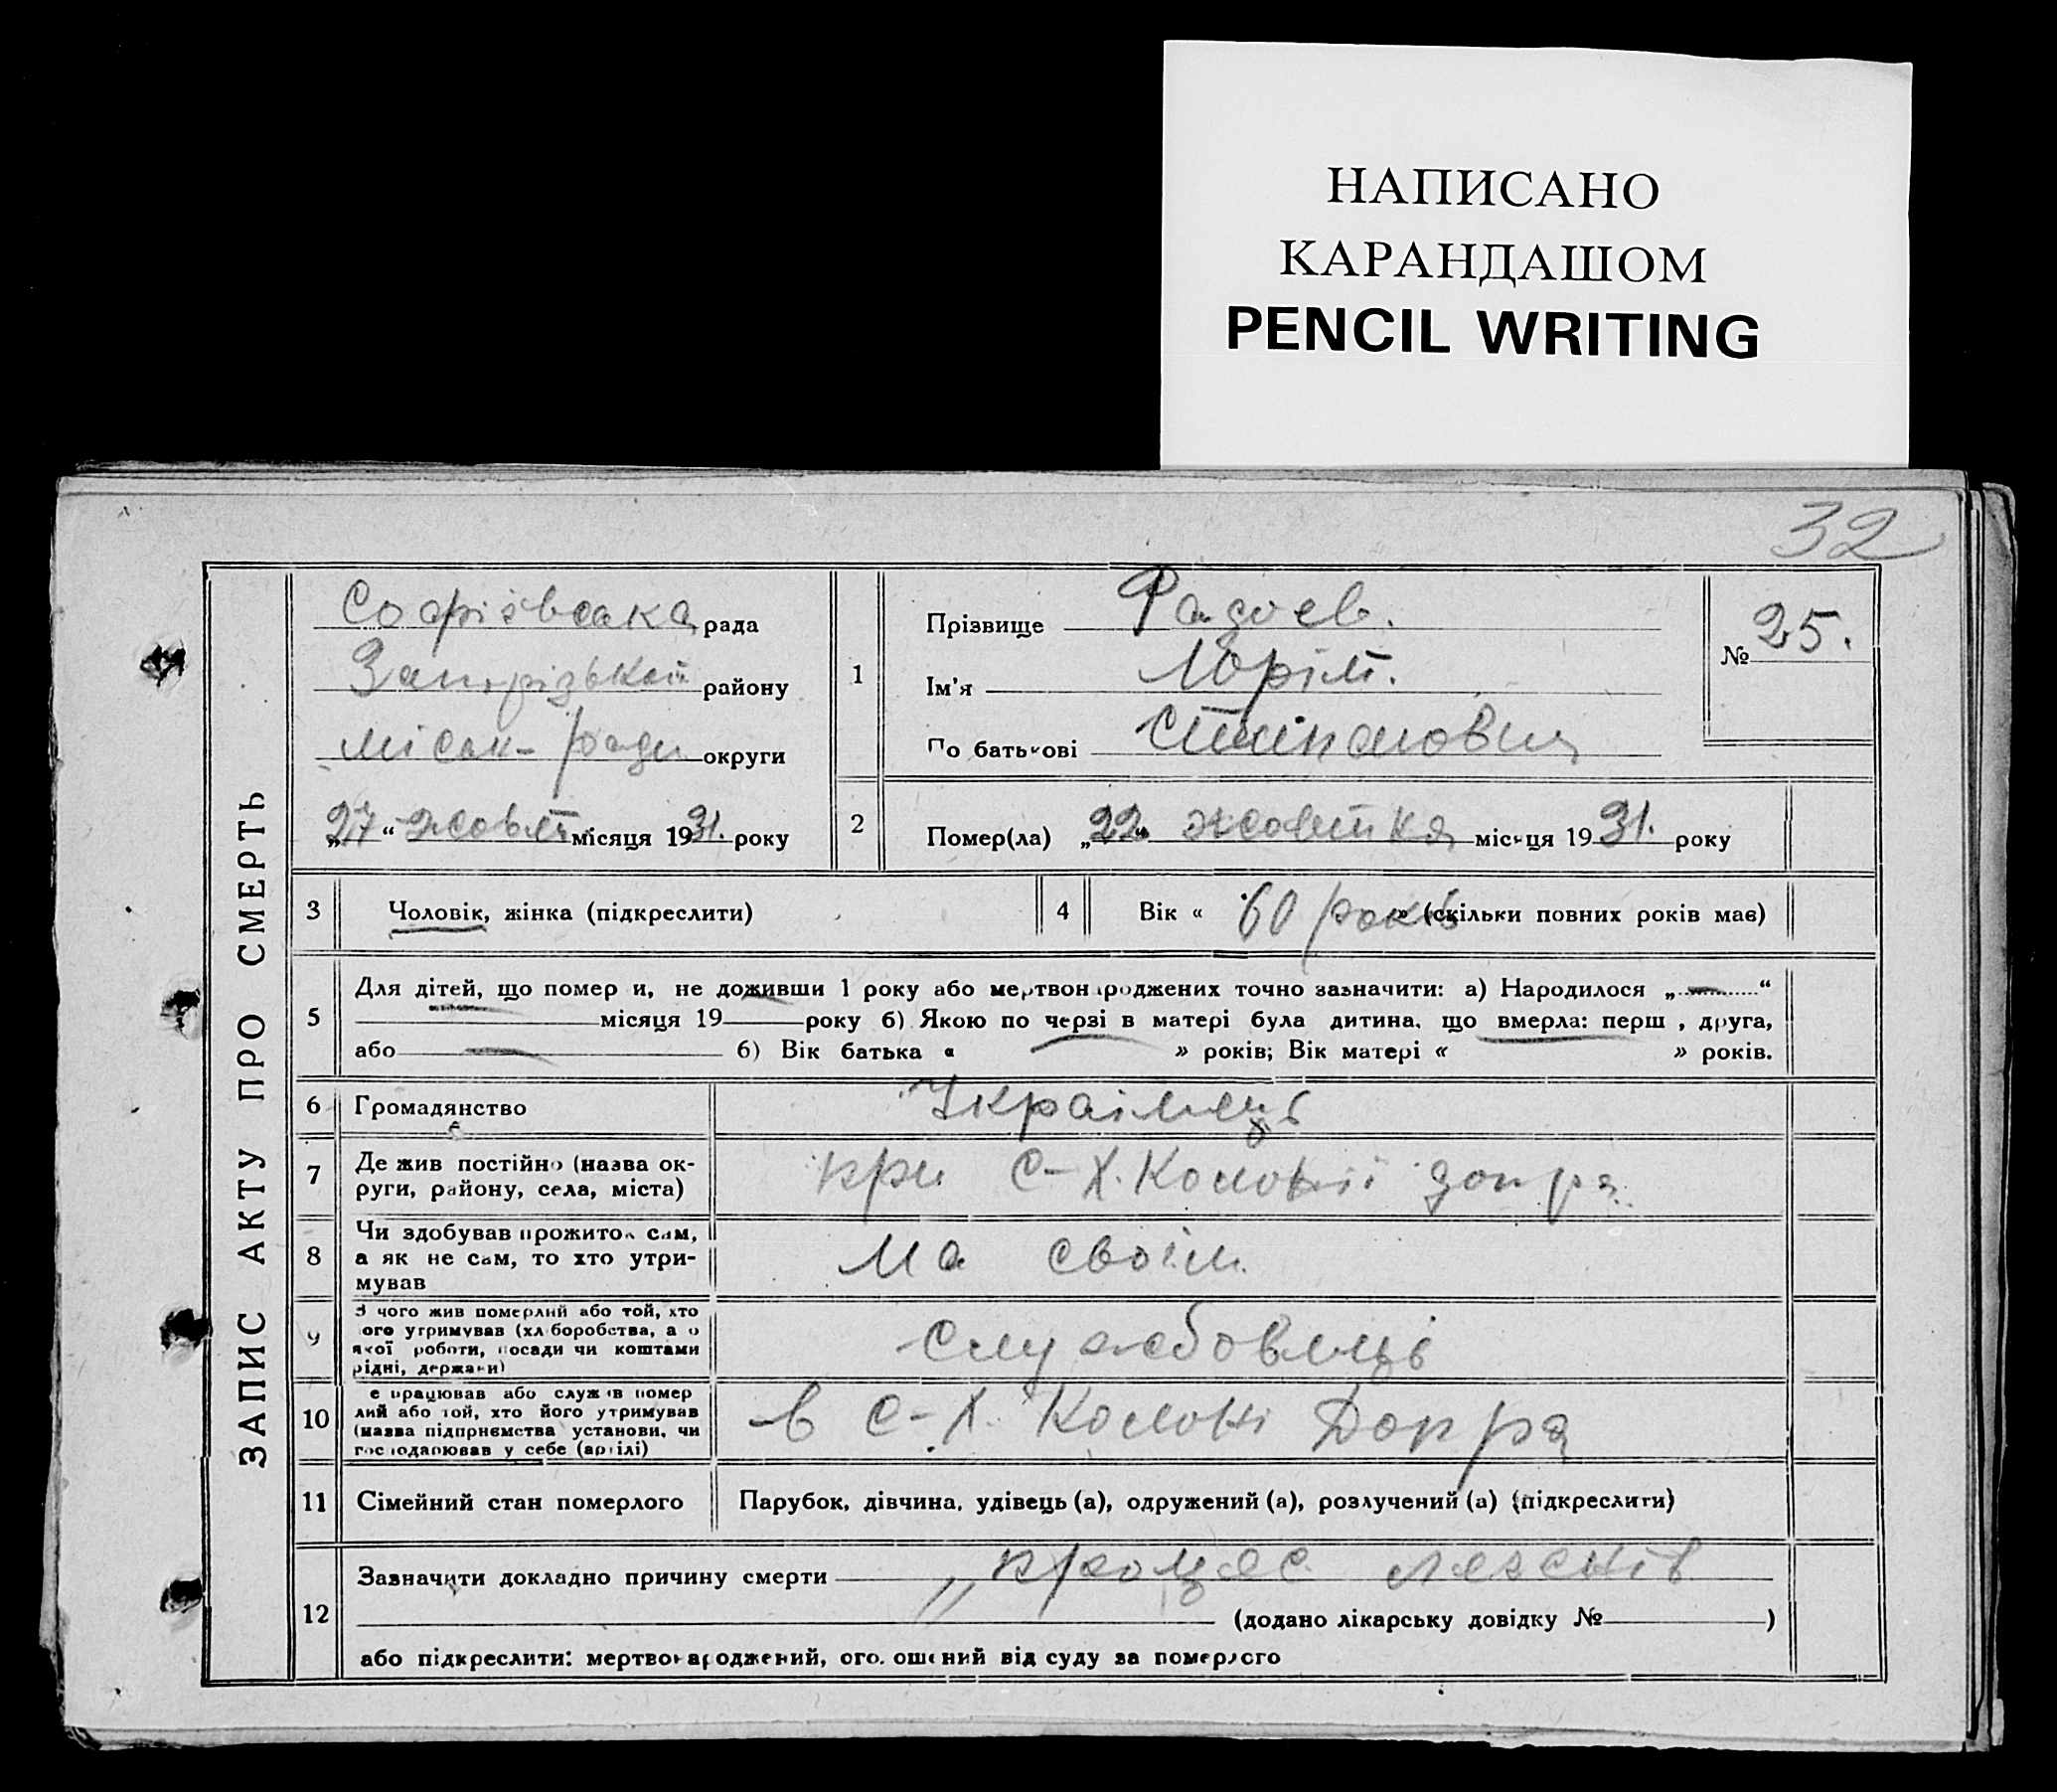 НАПИСАНО
КАРАНДАШОМ
PENCIL WRITING
32
ЗАПИС АКТУ ПРО СМЕРТЬ
Софіівська рада
Запорізької району
міськ-ради округи
„27“ жовт місяця 1931. року
1
Прізвище
Ім'я
По батькові
№ 25.
2 Помер(ла) „22“ жовтня місяця 1931. року
3 Чоловік, жінка (підкреслити)
4 Вік « 60 років » (скільки повних років має)
5 Для дітей, що померли, не доживши 1 року або мертвонароджених точно зазначити: а) Народилося „ “
місяця 19 року б) Якою по черзі в матері була дитина, що вмерла: перша, друга,
або б) Вік батька « » років; Вік матері « » років.
6 Громадянство Україінець
7 Де жив постійно (назва ок-
руги, району, села, міста)
при С-Х. Колонії допра
8 Чи здобував прожиток сам,
а як не сам, то хто утри-
мував
на своїм
9 З чого жив померлий або той, хто
його утримував (хліборобства, або
якої роботи, посади чи коштами
рідні, держави)
службовець
10 Де працював або служив помер
лий або той, хто його утримував
(назва підприємства установи, чи
господарював у себе (артілі)
в С-Х. Колоні Допра
11 Сімейний стан померлого Парубок, дівчина, удівець (а), одружений (а), розлучений (а) (підкреслити)
12 Зазначити докладно причину смерти „процес легенів
(додано лікарську довідку № )
або підкреслити: мертвонароджений, оголошений від суду за померлого